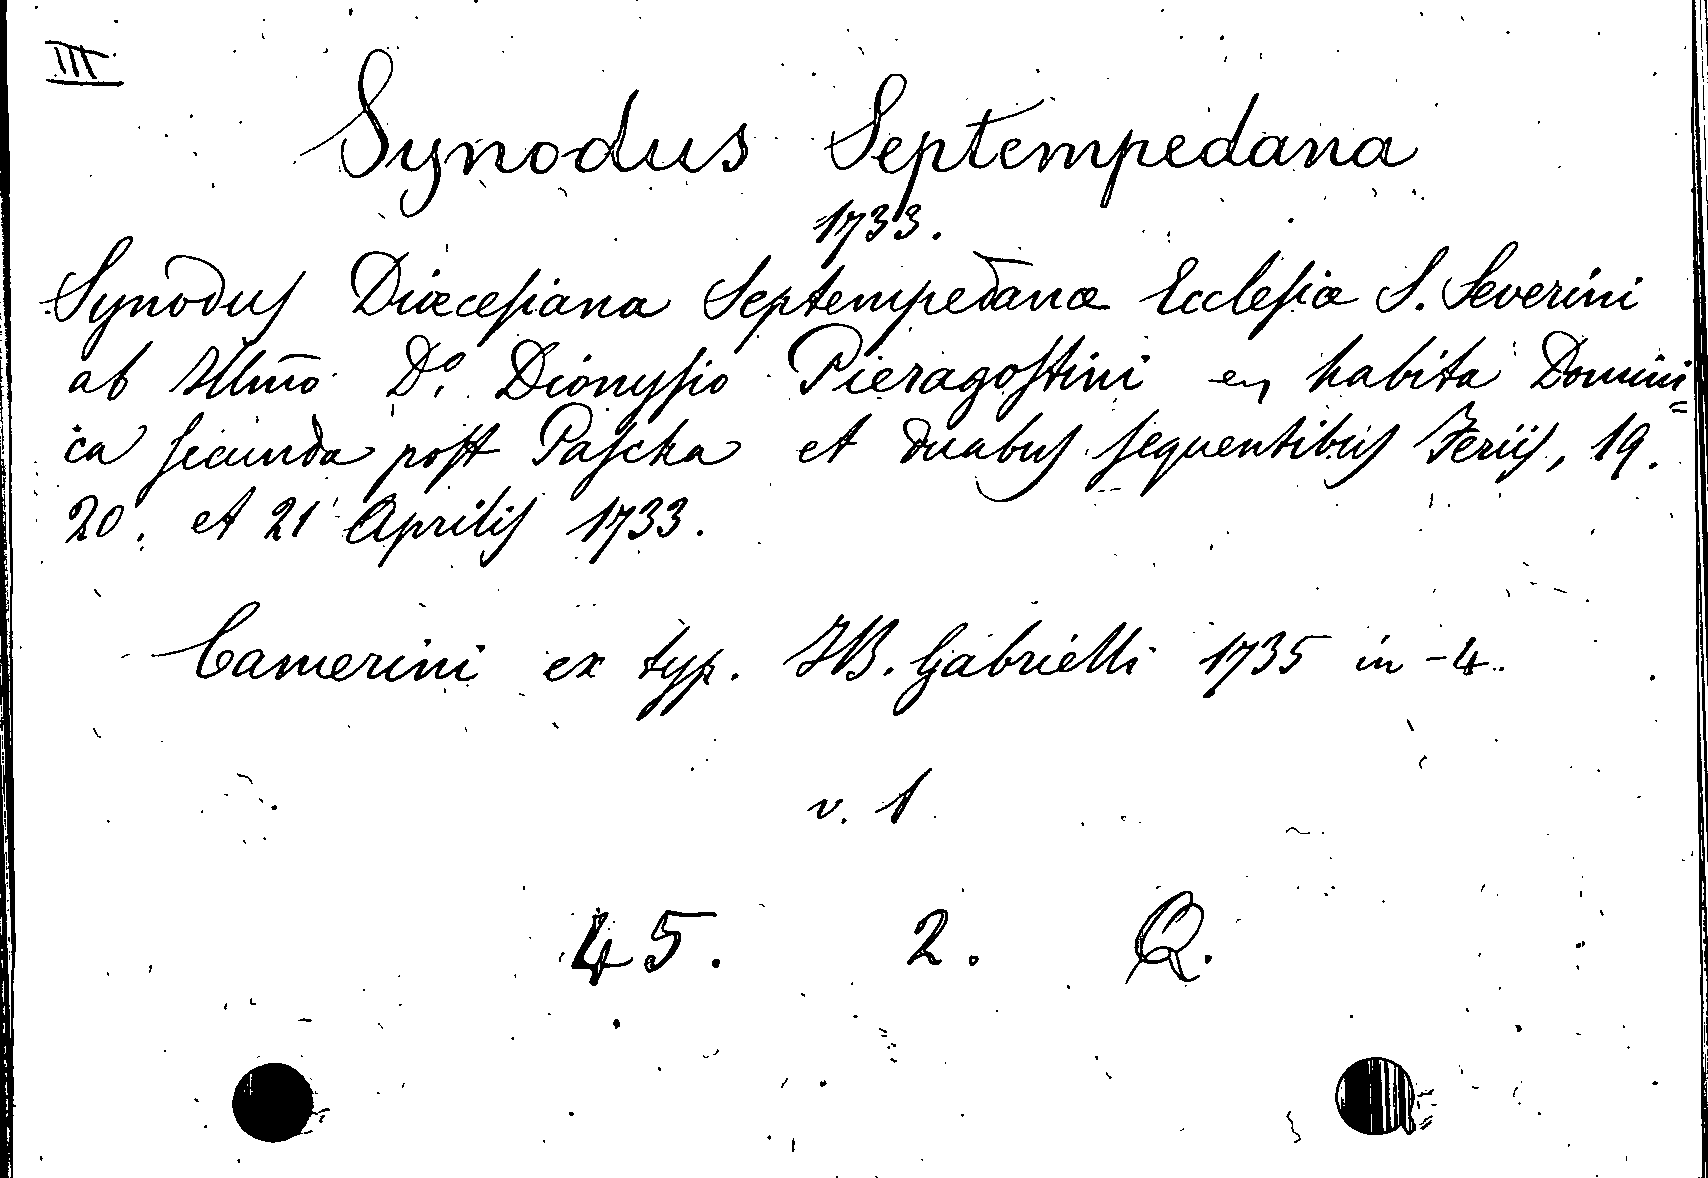 III
Synodus Septempedana
1733.
Synodus Diœcesiana Septempedanæ Ecclesiæ S. Severini
ab Illm̃o Dº. Dionysio Pieragostini en habita Domini=
ca secunda post Pascha et duabus sequentibus Feriis, 19.
20. et 21 Aprilis 1733.
Camerini ex typ. JB. Gabrielli 1735 in-4.
v. 1
45. 2. Q.